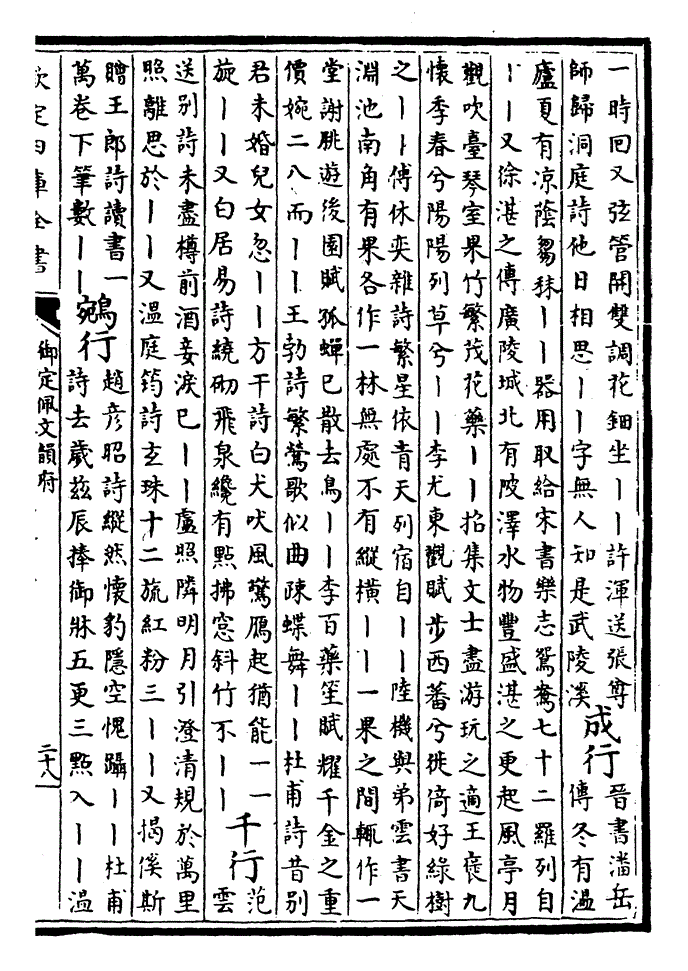 一時回又弦管開雙調花鈿坐丨丨許渾送張尊
師歸洞庭詩他日相思丨丨字無人知是武陵溪
成行
晉書潘岳
傳冬有温
廬夏有凉蔭芻秣丨丨器用取給宋書樂志鴛鴦七十二羅列自
丨丨又徐湛之傳廣陵城北有陂澤水物豐盛湛之更起風亭月
觀吹臺琴室果竹繁茂花藥丨丨招集文士盡游玩之適王裒九
懷季春兮陽陽列草兮丨丨李尤東觀賦步西蕃兮徙倚好綠樹
之丨丨傅休奕雜詩繁星依青天列宿自丨丨陸機與弟雲書天
淵池南角有果各作一林無處不有縱橫丨丨一果之間輒作一
堂謝朓遊後園賦孤蟬已散去鳥丨丨李百藥笙賦耀千金之重
價婉二八而丨丨王勃詩繁鶯歌似曲疎蝶舞丨丨杜甫詩昔别
君未婚兒女忽丨丨方干詩白犬吠風驚鴈起猶能一一
旋丨丨又白居易詩繞砌飛泉纔有點拂窓斜竹不丨丨
千行
范
雲
送别詩未盡樽前酒妾淚已丨丨盧照隣明月引澄清規於萬里
照離思於丨丨又溫庭筠詩玄珠十二旒紅粉三丨丨又揭傒斯
贈王郎詩讀書一
萬卷下筆數丨丨
鵷行
趙彦昭詩縱然懷豹隱空愧躡丨丨杜甫
詩去歲兹辰捧御牀五更三點入丨丨温
欽定四庫全書
御定佩文韻府
二十八